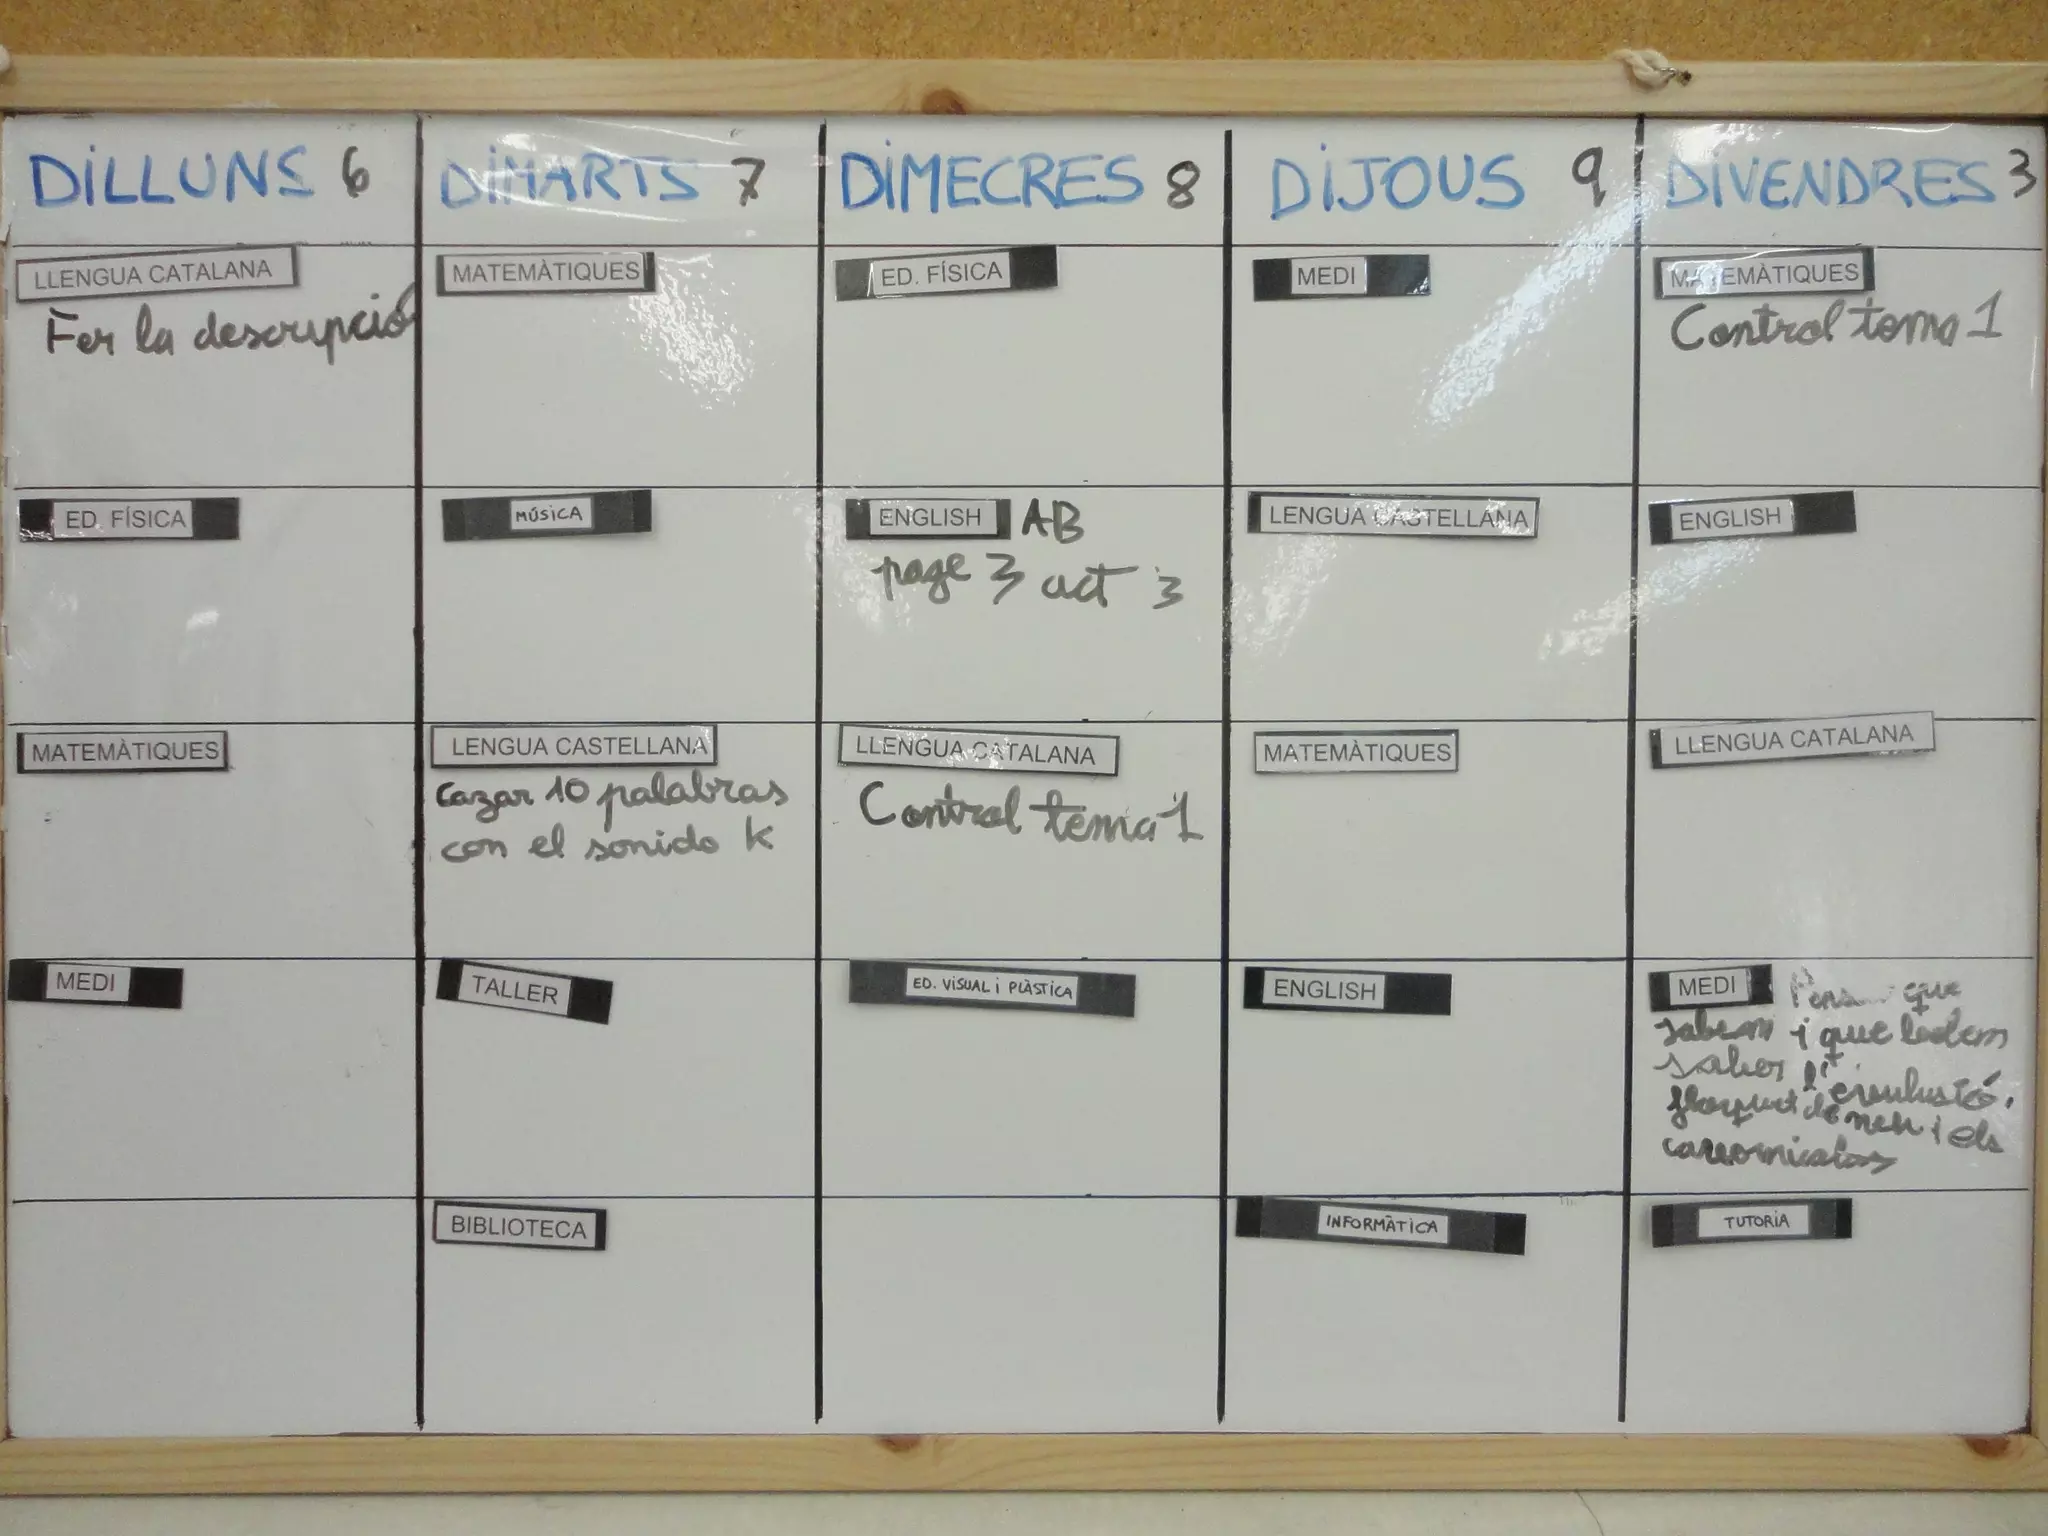 DILLUNS 6 DIMARTS 7 DIMECRES 8 DIJOUS 9 DIVENDRES 3
LLENGUA CATALANA
Fer la descripció
MATEMÀTIQUES
ED. FÍSICA
MEDI
MATEMÀTIQUES
Control tema 1
ED. FÍSICA
MÚSICA
ENGLISH AB
page 3 act 3
LENGUA CASTELLANA
ENGLISH
MATEMÀTIQUES
LENGUA CASTELLANA
Cazar 10 palabras
con el sonido k
LLENGUA CATALANA
Control tema 1
MATEMÀTIQUES
LLENGUA CATALANA
MEDI
TALLER
ED. VISUAL i PLÀSTICA
ENGLISH
MEDI què
sabem i que
saber l'evolució,
de neu i els
BIBLIOTECA
INFORMÀTICA
TUTORIA